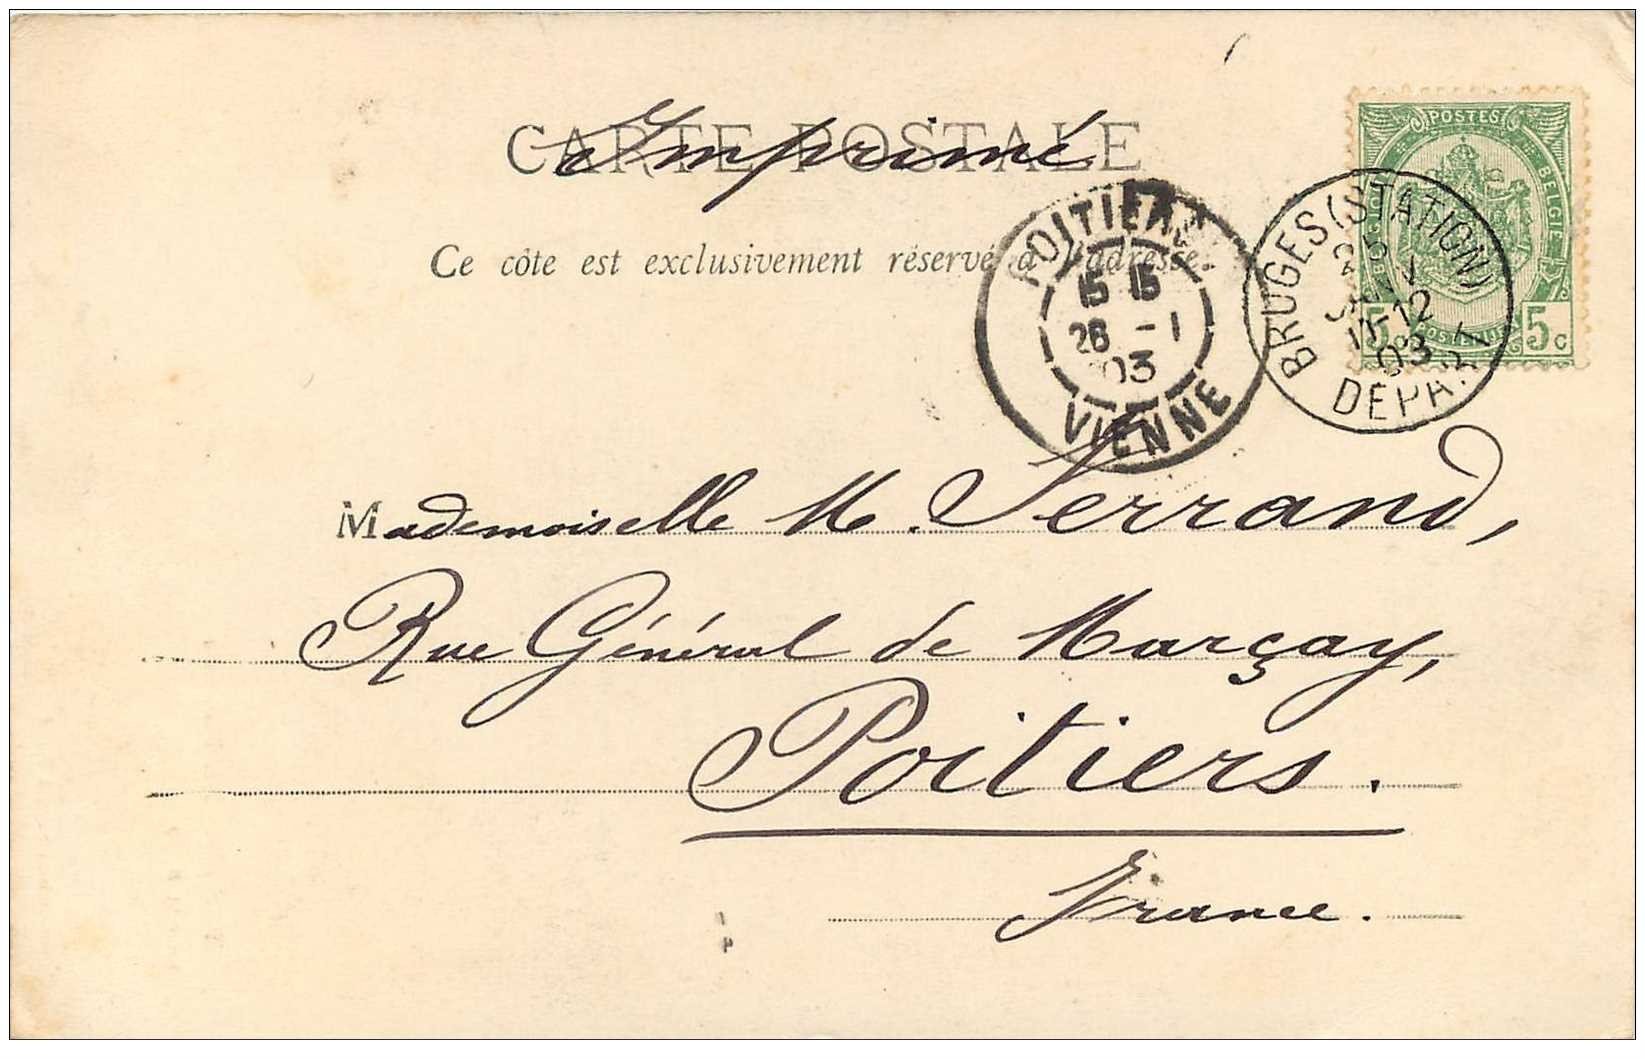 CARTE POSTALE
Imprimé
Ce côte est exclusivement réservé à l'adresse.
POSTES
BELGIE
5c
POITIERS
15 15
26 - 1
03
VIENNE
BRUGES (STATION)
25
JANV
11-12
03
DEPART
Mademoiselle M. Serrand,
Rue Général de Marçay,
Poitiers.
France.